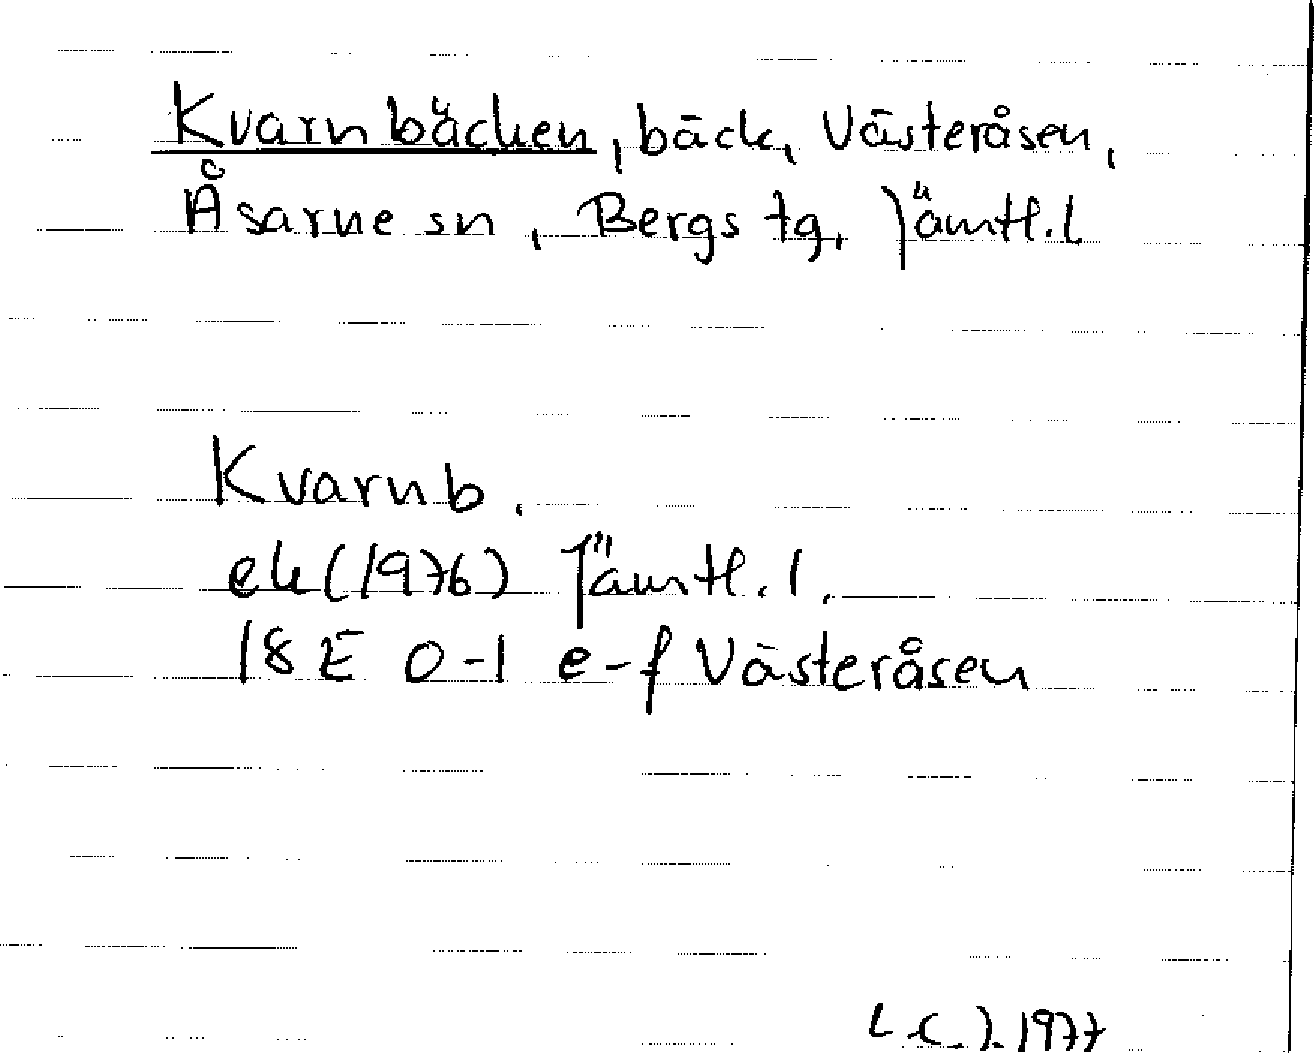 Kvarnbäcken, bäck, Västeråsen,
Åsarne sn, Bergs tg, Jämtl. l
Kvarnb.
ek (1976) Jämtl. l.
18 E 0-1 e-f Västeråsen
1977